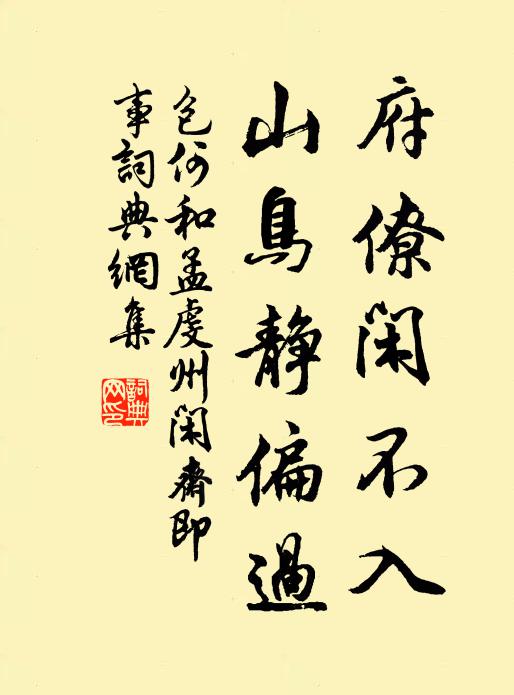 府僚閑不入
山鳥静偏過
包何和孟虔州閑齋即
事詞典網集
詞典
网印